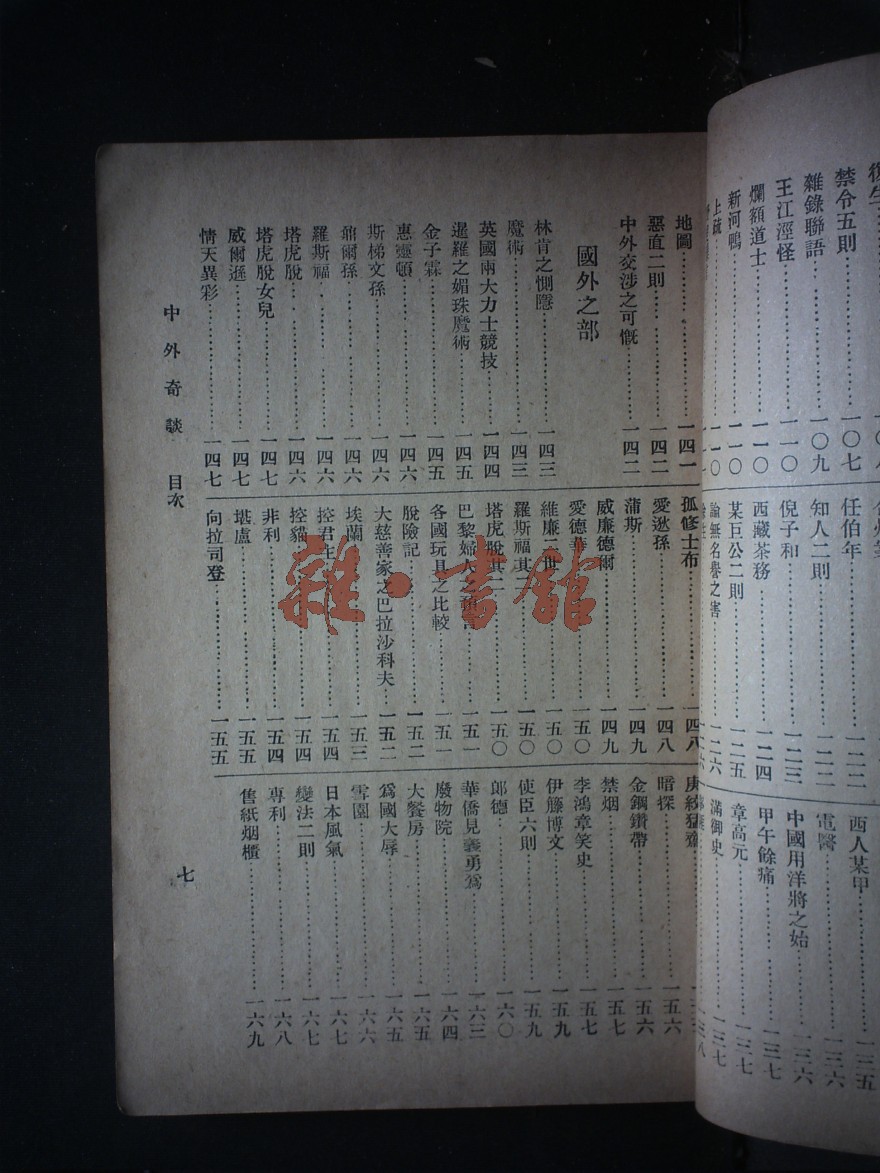 禁令五則…一〇七
雜錄聯語…一〇九
王江涇怪…一一〇
爛額道士…一一〇
新河鴨…一一〇
上疏…一一〇
任伯年…一二二
知人二則…一二二
倪子和…一二三
西藏茶務…一二四
某巨公二則…一二五
論無名譽之害…一二六
西人某甲…一三五
電醫…一三六
中國用洋將之始…一三六
甲午餘痛…一三七
章高元…一三七
滿御史…一三八
地圖…一四一
惡直二則…一四二
中外交涉之可慨…一四二
國外之部
林肯之惻隱…一四三
魔術…一四三
英國兩大力士競技…一四四
暹羅之媚珠魔術…一四五
金子霖…一四五
惠靈頓…一四六
斯梯文孫…一四六
鼐爾孫…一四六
羅斯福…一四六
塔虎脫…一四六
塔虎脫女兒…一四七
威爾遜…一四七
情天異彩…一四七
孤修士布…一四八
愛遜孫…一四八
蒲斯…一四九
威廉德爾…一四九
愛德華…一五〇
維廉二世…一五〇
羅斯福其二…一五〇
塔虎脫其二…一五〇
巴黎婦人之預言…一五一
各國玩具之比較…一五一
脫險記…一五二
大慈善家之巴拉沙科夫…一五二
埃蘭…一五三
控君主…一五四
控貓…一五四
非利…一五四
堪盧…一五五
向拉司登…一五五
暗探…一五六
金鋼鑽帶…一五六
禁烟…一五七
李鴻章笑史…一五七
伊籐博文…一五九
使臣六則…一五九
郎德…一六〇
華僑見義勇爲…一六三
廢物院…一六四
大餐房…一六五
爲國大辱…一六五
雪園…一六六
日本風氣…一六七
變法二則…一六七
專利…一六八
售紙烟櫃…一六九
中外奇談 目次
七
雜·書館